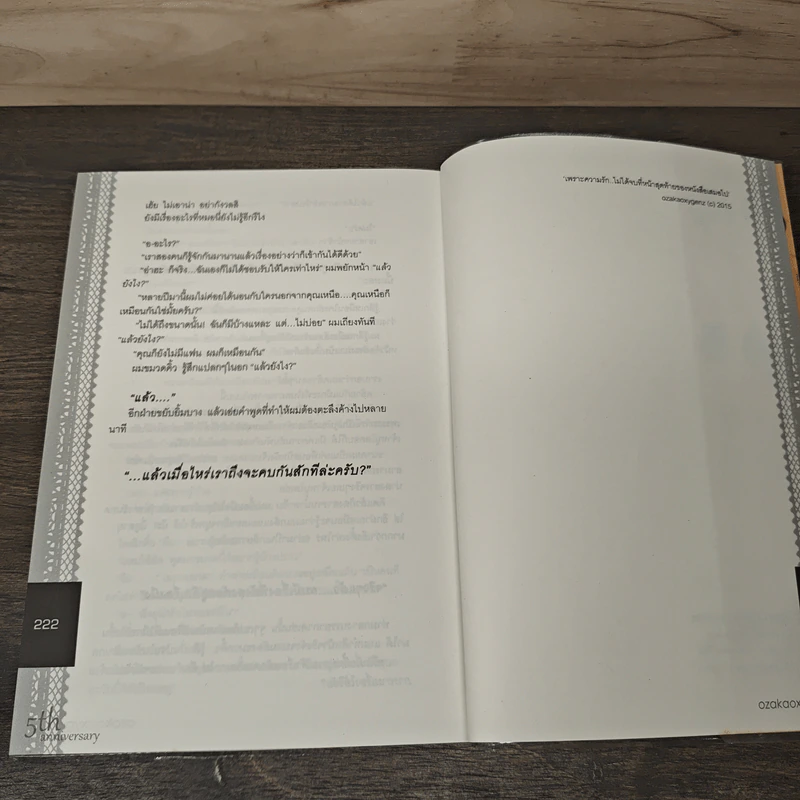 เฮ้ย ไม่เอาน่า อย่ากังวลสิ
ยังมีเรื่องอะไรที่หมอนี่ยังไม่รู้อีกรึไง
"อ-อะไร?"
"เราสองคนก็รู้จักกันมานานแล้วเรื่องอย่างว่าก็เข้ากันได้ดีด้วย"
"อ่าฮะ ก็จริง...ฉันเองก็ไม่ได้ชอบรับให้ใครเท่าไหร่" ผมพยักหน้า "แล้ว
ยังไง?"
"หลายปีมานี้ผมไม่ค่อยได้นอนกับใครนอกจากคุณเหนือ....คุณเหนือก็
เหมือนกันใช่มั้ยครับ?"
"ไม่ได้ถึงขนาดนั้น! ฉันก็มีบ้างแหละ แต่...ไม่บ่อย" ผมเถียงทันที
"แล้วยังไง?"
"คุณก็ยังไม่มีแฟน ผมก็เหมือนกัน"
ผมขมวดคิ้ว รู้สึกแปลกๆในอก "แล้วยังไง?"
"แล้ว...."
อีกฝ่ายขยับยิ้มบาง แล้วเอ่ยคำพูดที่ทำให้ผมต้องตะลึงค้างไปหลาย
นาที
"...แล้วเมื่อไหร่เราถึงจะคบกันสักทีล่ะครับ?"
222
5th
anniversary
'เพราะความรัก..ไม่ได้จบที่หน้าสุดท้ายของหนังสือเสมอไป'
ozakaoxygenz (c) 2015
ozakaox